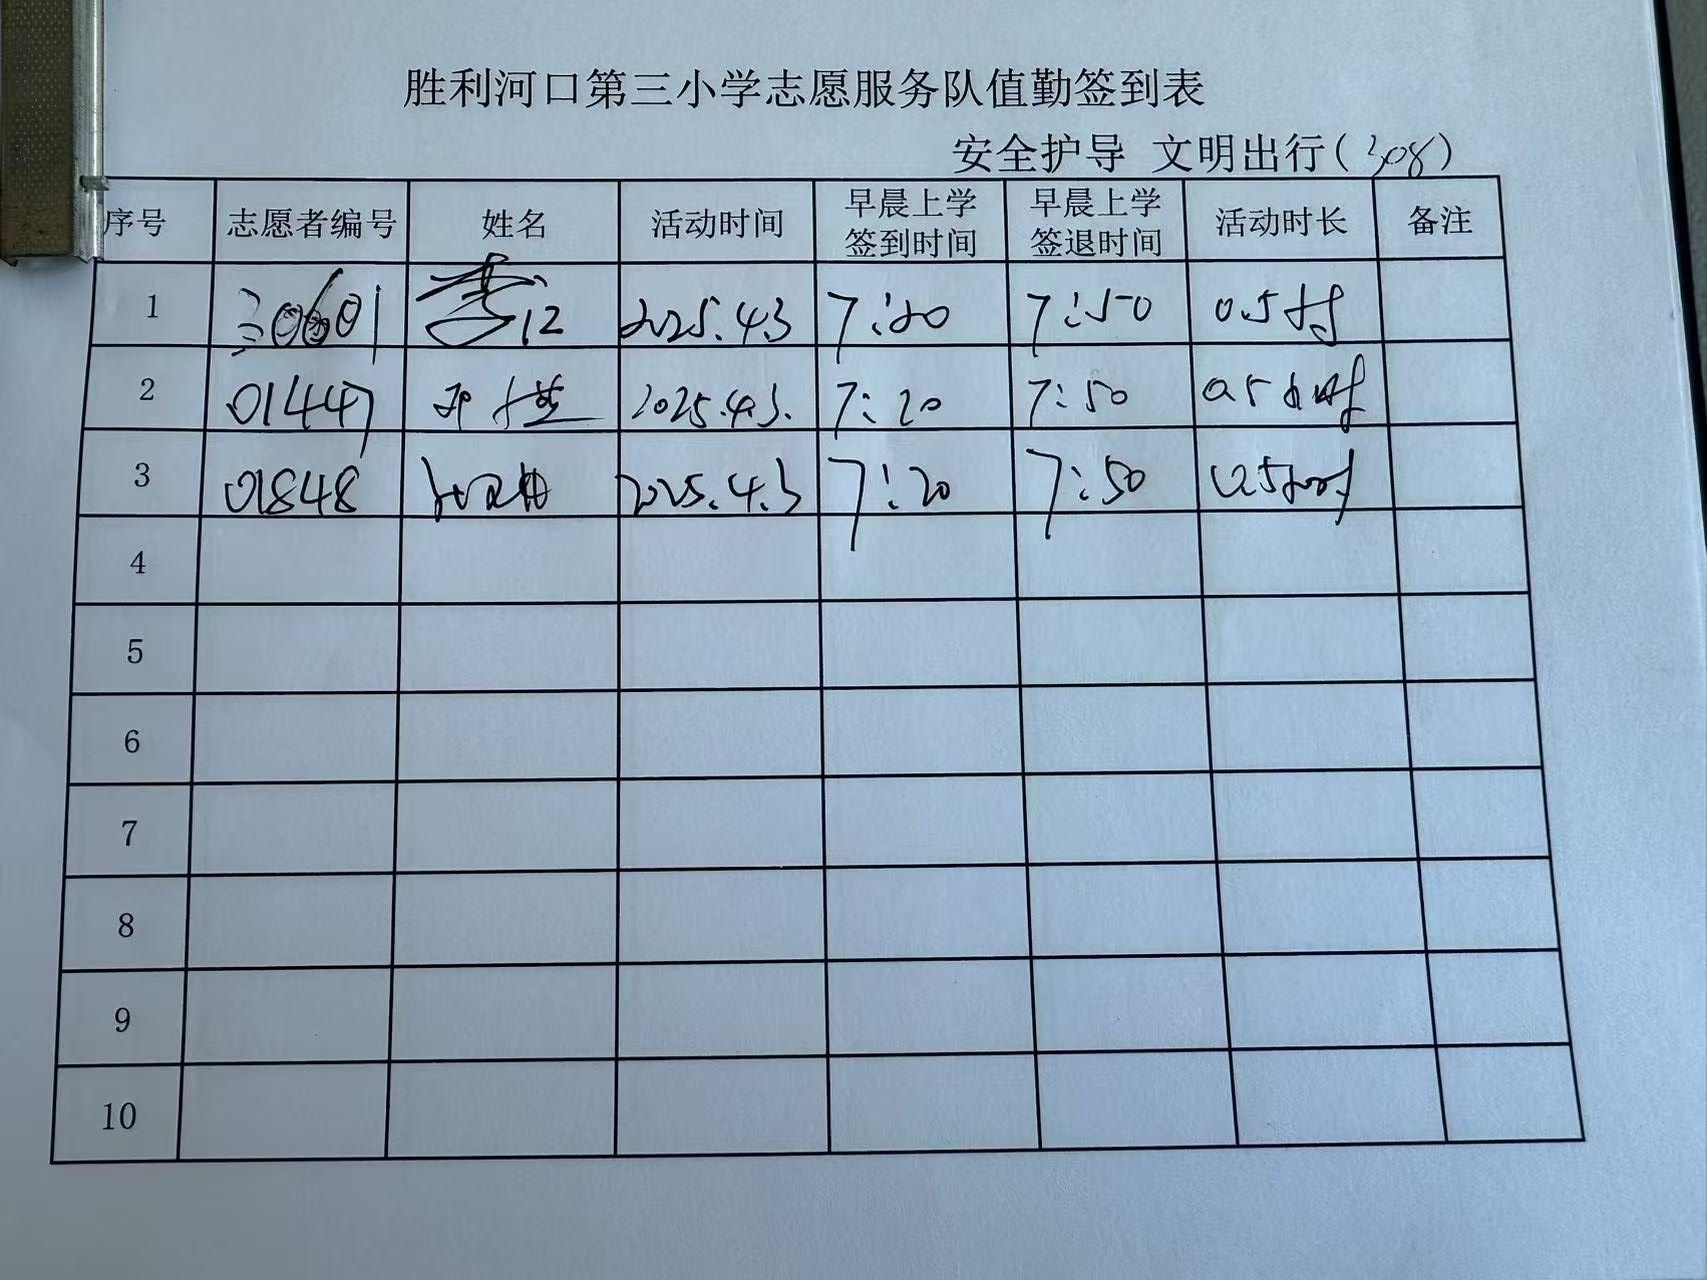 胜利河口第三小学志愿服务队值勤签到表
安全护导 文明出行(308)
序号 志愿者编号 姓名 活动时间 早晨上学签到时间 早晨上学签退时间 活动时长 备注
1 2025.4.3 7:20 7:50 0.5
2 01447 2025.4.3. 7:20 7:50 0.5小时
3 01848 2025.4.3 7:20 7:50 0.5小时
4
5
6
7
8
9
10